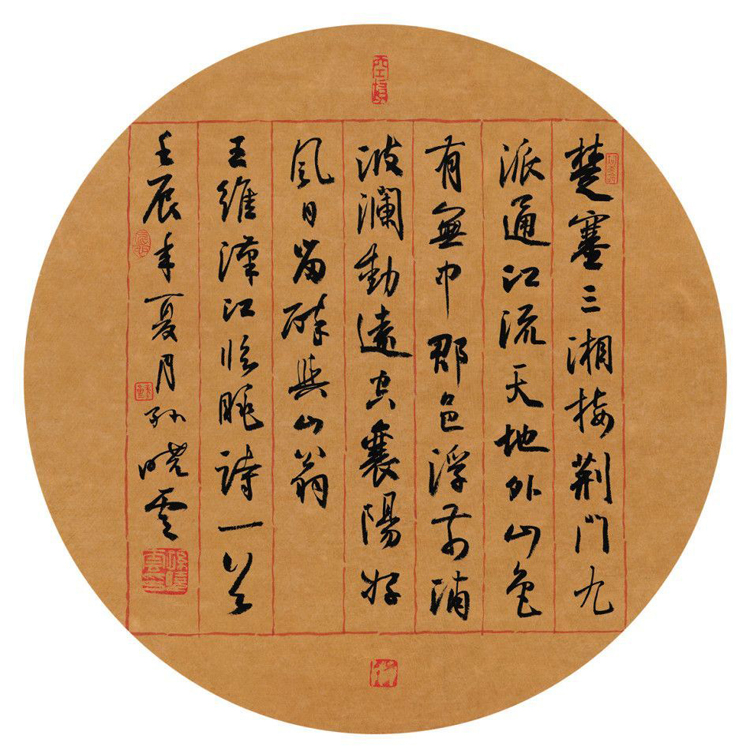 楚塞三湘接荆門九
派通江流天地外山色
有無中郡邑浮前浦
波瀾動遠空襄陽好
風日留醉與山翁
王維漢江臨眺詩一首
壬辰年夏月孫曉雲